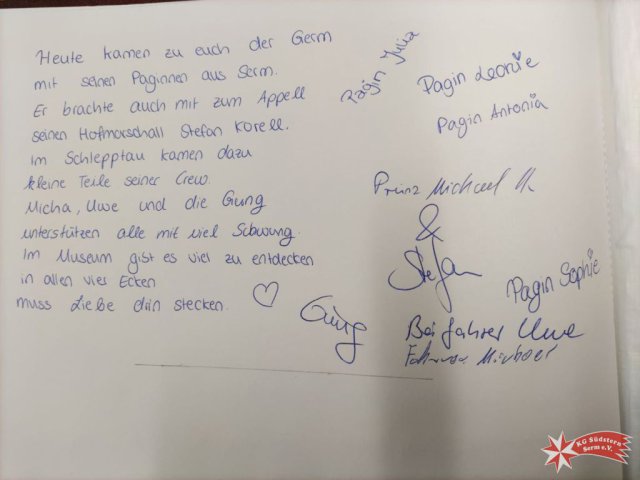 Heute kamen zu euch der Germ
mit seinen Paginnen aus Serm.
Er brachte auch mit zum Appell
seinen Hofmarschall Stefan Korell.
Im Schlepptau kamen dazu
kleine Teile seiner Crew.
Micha, Uwe und die Gung
unterstützen alle mit viel Schwung.
Im Museum gist es viel zu entdecken
in allen vier Ecken
muss Liebe drin stecken.
Gung
Pagin Julia
Pagin Leonie
Pagin Antonia
Prinz Michael
&
Stefan
Pagin Sophie
Beifahrer Uwe
KG Südstern
Serm e.V.